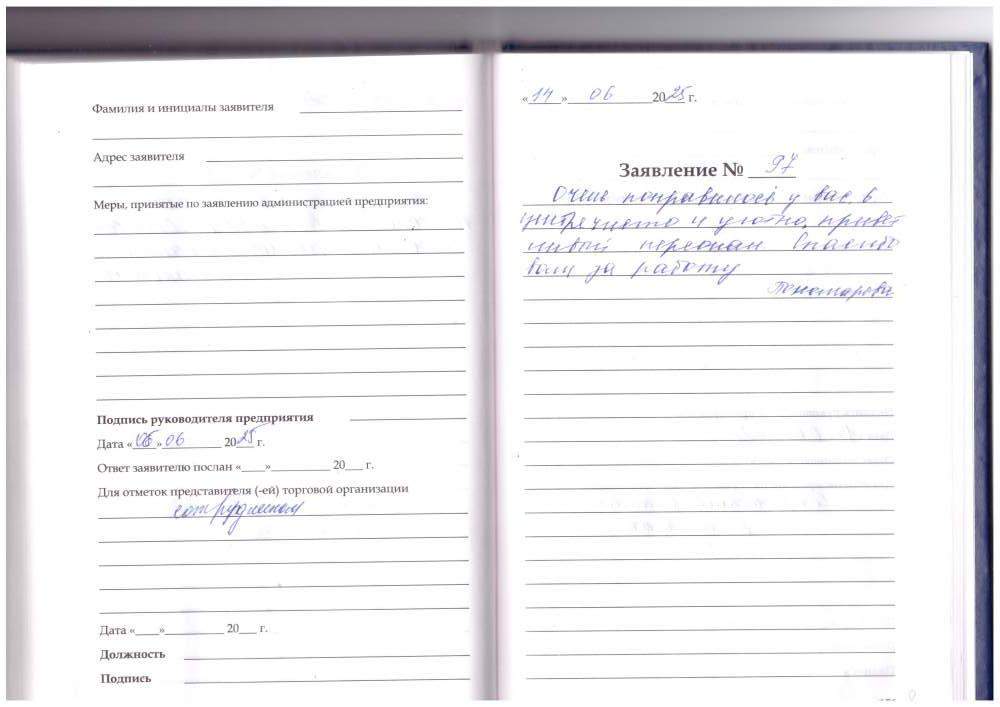 Фамилия и инициалы заявителя
Адрес заявителя
Меры, принятые по заявлению администрацией предприятия:
Подпись руководителя предприятия
Дата «06» 06 2025 г.
Ответ заявителю послан «___»_________ 20___ г.
Для отметок представителя (-ей) торговой организации
Дата «___»_________ 20___ г.
Должность
Подпись
«14» 06 2025 г.
Заявление № 97
Очень понравилось у вас, в
чисто и уютно, привет
ливый персонал Спасибо
вам за работу
Пономарова